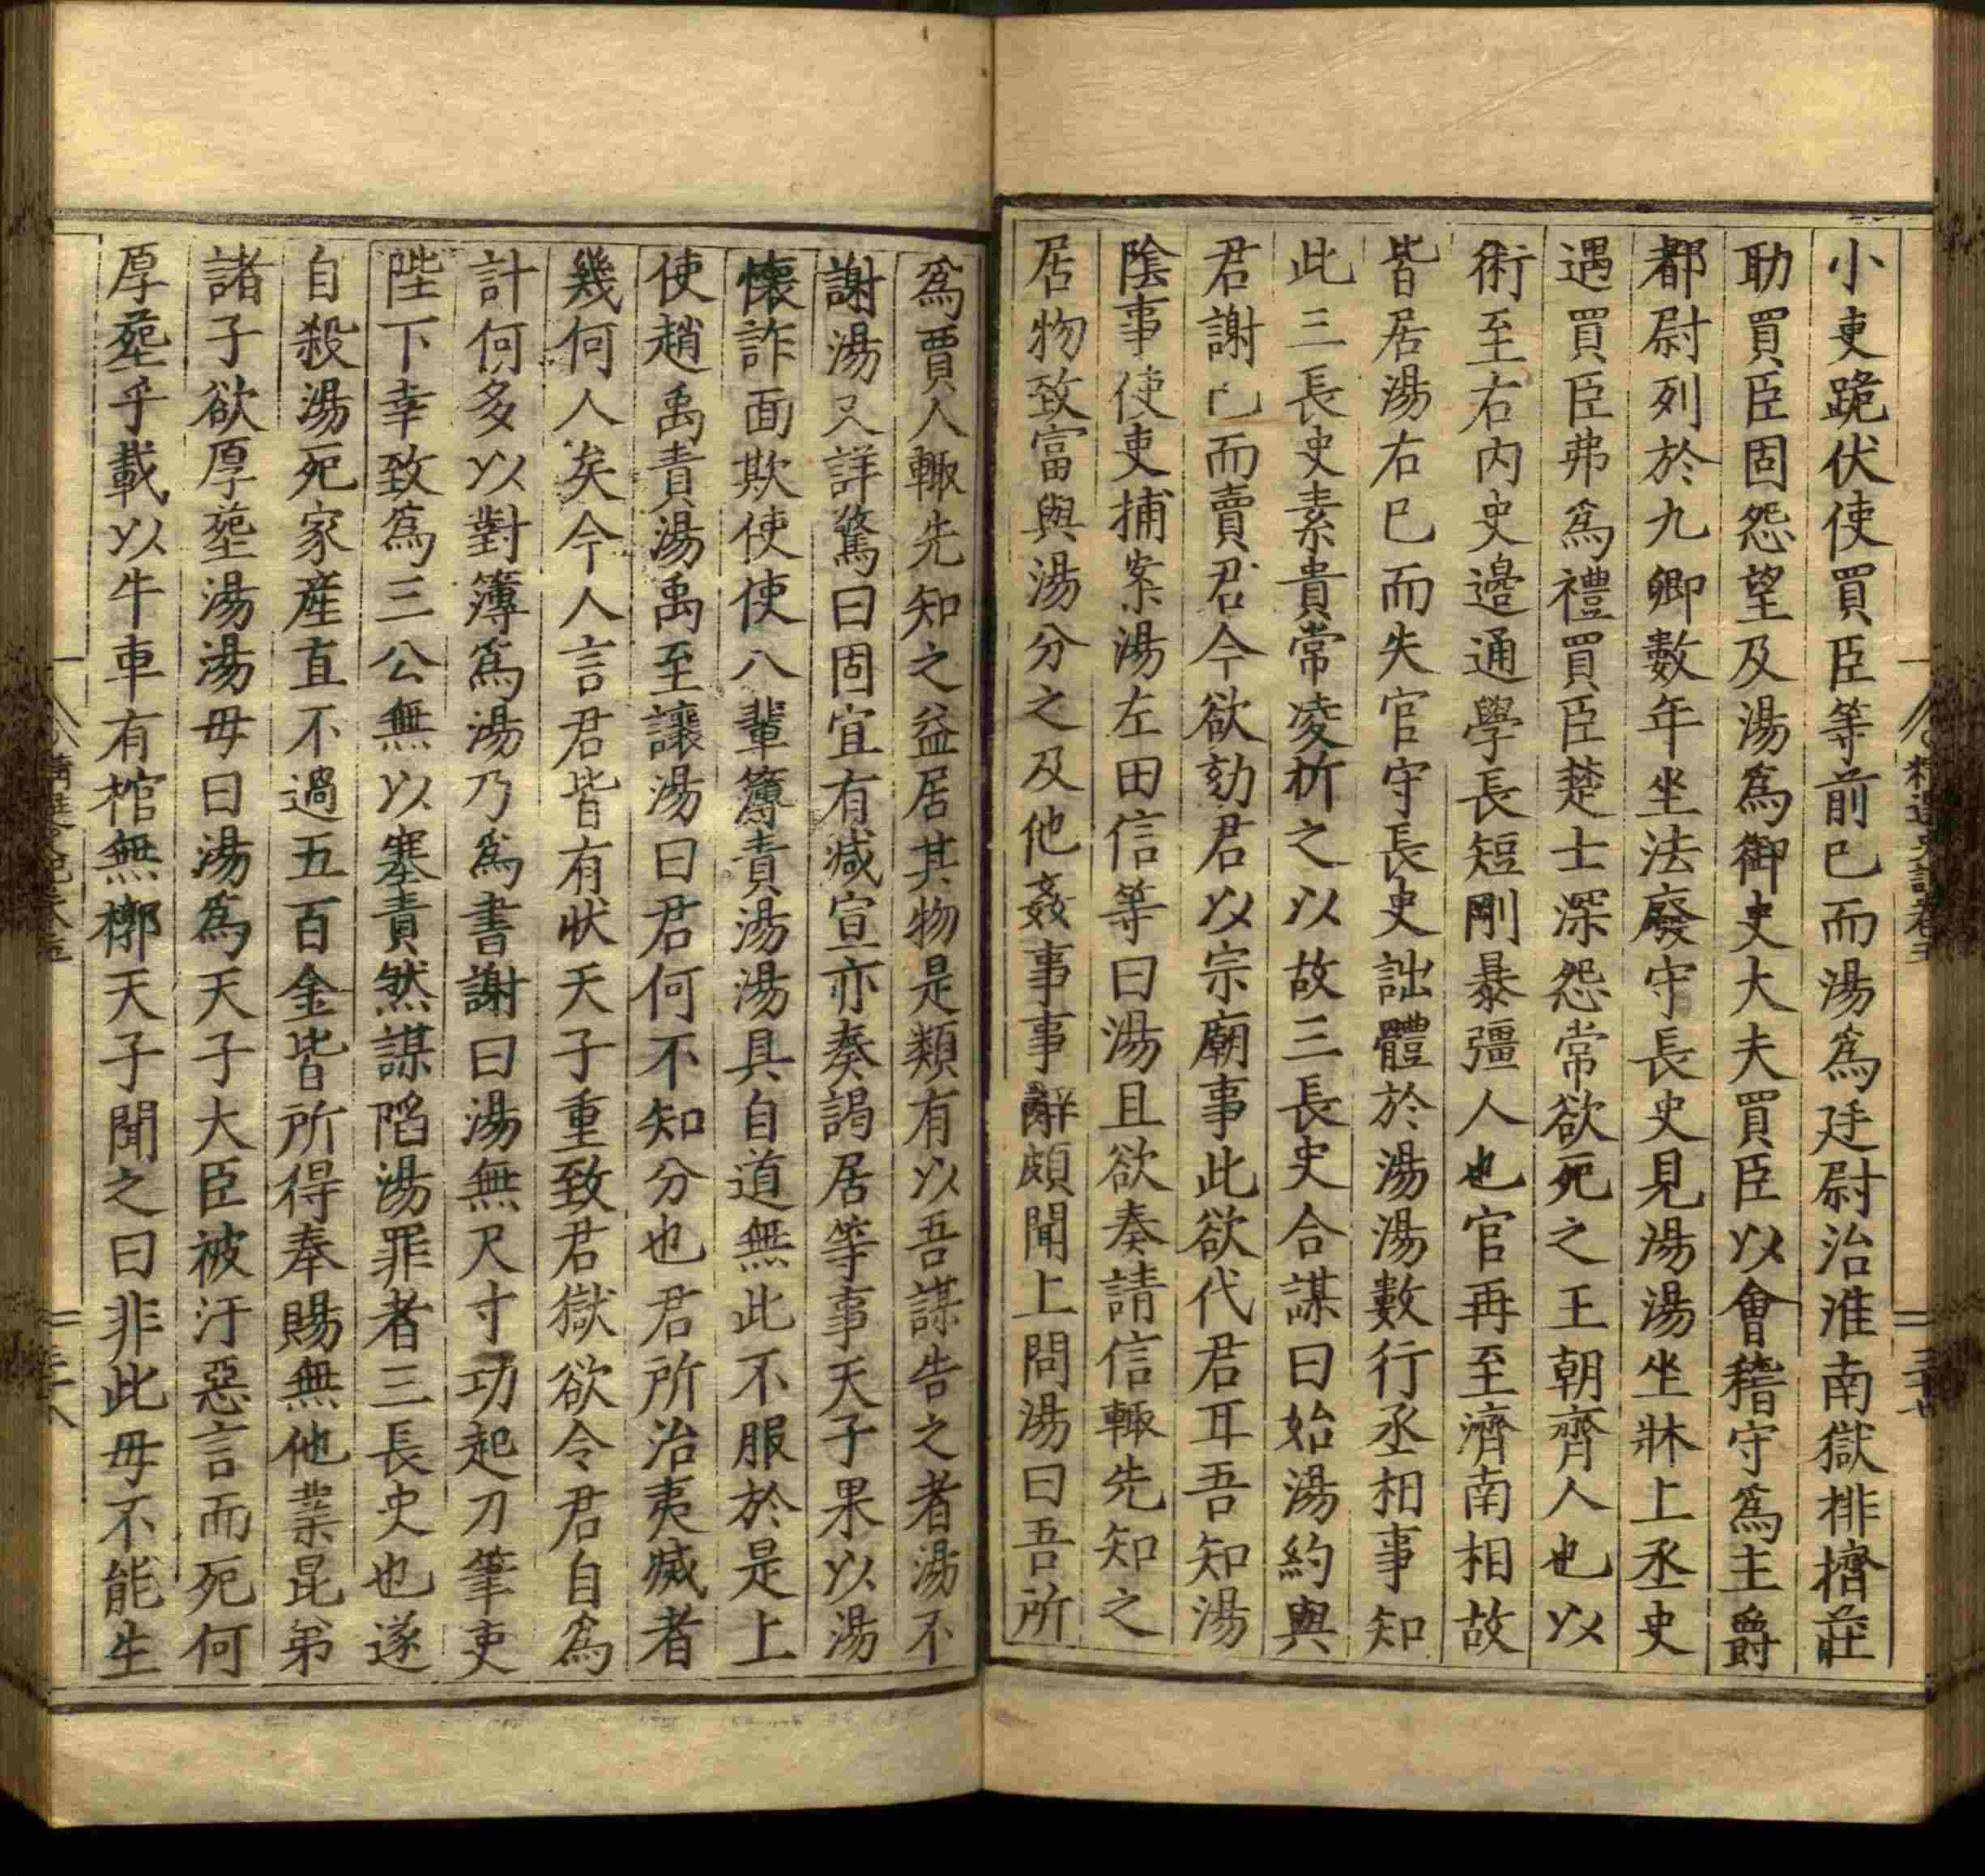 小吏跪伏使買臣等前已而湯爲廷尉治淮南獄排擠莊
助買臣固怨望及湯爲御史大夫買臣以會稽守爲主爵
都尉列於九卿數年坐法廢守長史見湯湯坐牀上丞史
遇買臣弗爲禮買臣楚士深怨常欲死之王朝齊人也以
術至右內史邉通學長短剛暴彊人也官再至濟南相故
皆居湯右已而失官守長史詘體於湯湯數行丞相事知
此三長史素貴常凌折之以故三長史合謀曰始湯約與
君謝已而賣君今欲劾君以宗廟事此欲代君耳吾知湯
陰事使吏捕案湯左田信等曰湯且欲奏請信輒先知之
居物致富與湯分之及他姦事事辭頗聞上問湯曰吾所
爲賈人輒先知之益居其物是類有以吾謀告之者湯不
謝湯又詳驚曰固宜有减宣亦奏謁居等事天子果以湯
懷詐面欺使使八輩簿責湯湯具自道無此不服於是上
使趙禹責湯禹至讓湯曰君何不知分也君所治夷滅者
幾何人矣今人言君皆有狀天子重致君獄欲令君自爲
計何多以對簿爲湯乃爲書謝曰湯無尺寸功起刀筆吏
陛下幸致爲三公無以塞責然謀陷湯罪者三長史也遂
自殺湯死家産直不過五百金皆所得奉賜無他業昆弟
諸子欲厚塟湯湯母曰湯爲天子大臣被汙惡言而死何
厚塟乎載以牛車有棺無槨天子聞之曰非此母不能生